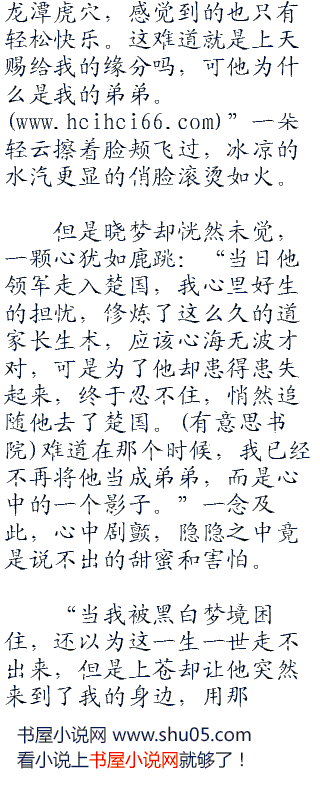 龙潭虎穴，感觉到的也只有
轻松快乐。这难道就是上天
赐给我的缘分吗，可他为什
么是我的弟弟。
(www.hcihci66.com)”一朵
轻云擦着脸颊飞过，冰凉的
水汽更显的俏脸滚烫如火。
但是晓梦却恍然未觉，
一颗心犹如鹿跳：“当日他
领军走入楚国，我心里好生
的担忧，修炼了这么久的道
家长生术，应该心海无波才
对，可是为了他却患得患失
起来，终于忍不住，悄然追
随他去了楚国。(有意思书
院)难道在那个时候，我已经
不再将他当成弟弟，而是心
中的一个影子。”一念及
此，心中剧颤，隐隐之中竟
是说不出的甜蜜和害怕。
“当我被黑白梦境困
住，还以为这一生一世走不
出来，但是上苍却让他突然
来到了我的身边，用那
书屋小说网 www.shu05.com
看小说上书屋小说网就够了！